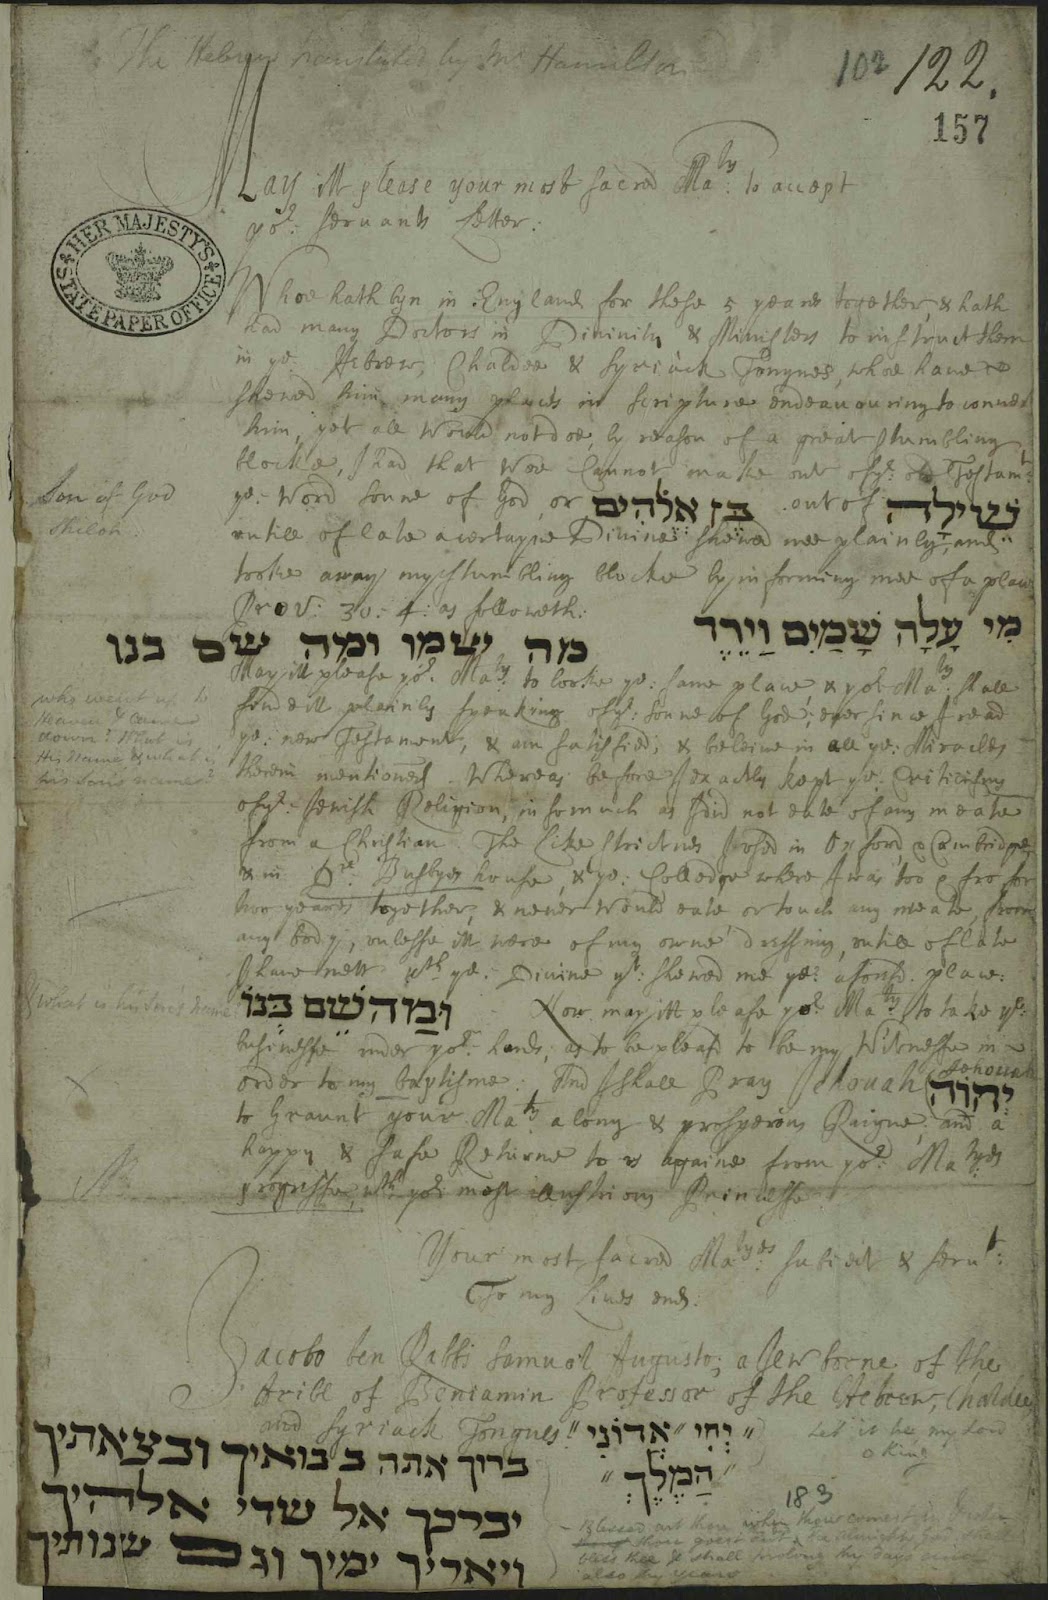 The Hebrew translated by Mr Hamilton
102 122.
157
May itt please your most sacred Ma:ty to accept
yor: servants Letter:
HER MAJESTY'S STATE PAPER OFFICE
Whoe hath byn in England for these 5 yeares together, & hath
had many Doctors in Divinity & Ministers to instruct them
in ye: Hebrew, Chaldee & Syriack Tongues, whoe have
shewed him many places in Scripture endeavouring to
him, yet all would not doe, by reason of a great stumbling
blocke, I had that wee Cannot make out of ye: old Testamt:
ye: Word sonne of God, or בֶּן אֱלֹהִים out of שִׁילֹה
Son of God
Shiloh
untill of late a certayne Divine shewed mee plainly, and
tooke away my stumbling blocke by informing mee of a place
Prov: 30: 4: as followeth: מִי עָלָה שָׁמַיִם וַיֵּרֶד
מה שמו ומה שם בנו
May itt please yor: Ma:ty to looke ye: same place, & yor Ma:ty shall
find itt plainly speaking of ye: sonne of God; ever since I read
ye: new Testament, & am satisfied, & beleive in all ye: Miracles
therein mentioned. Whereas before I exactly kept ye: Criticisms
of ye: Jewish Religion, in so much as I did not eate of any meate
from a Christian. The like strictnes I used in Oxford, & Cambridge,
& in Dr: Busbyes house, & ye: Colledge where I was too & fro for
two yeares together, & never would eate or touch any meate, from
any body, unlesse itt were of my owne dressing, untill of late
I have mett wth ye: Divine yt: shewed me ye: aforesd. place:
who went up to
Heaven & came
down? What is
His name & what is
his Son's name?
What is his Sons name
וּמַה שֶּׁם בְּנוֹ Now may itt please yor: Ma:ty to take ys:
businesse under yor: hands, as to be pleasd to be my Witnesse in
order to my baptisme: And I shall Pray Jehovah יְהוָֹה
Jehovah
to Graunt your Ma:ty a long & prosperous Raigne, and a
happy & safe Returne to us againe from yor: Ma:tyes
progresse, wth yor: most illustrious Princesse
Your most sacred Ma:tyes subiect & servt:
To my lives end.
Jacobo ben Rabbi Samuel Augusto; a Jew borne of the
tribe of Beniamin Professor of the Hebrew, Chaldee
and Syriack Tongues. יְחִי אֲדוֹנִי
הַמֶּלֶךְ
Let it be my Lord
O King
ברוך אתה בבואיך ובצאתיך
יברכך אל שדי אלהיך
ויאריך ימיך וגם שנותיך
183
Blessed art thou when thou comest in & when
thou goest out, the almighty God shall
bless thee & shall prolong thy days and
also thy years